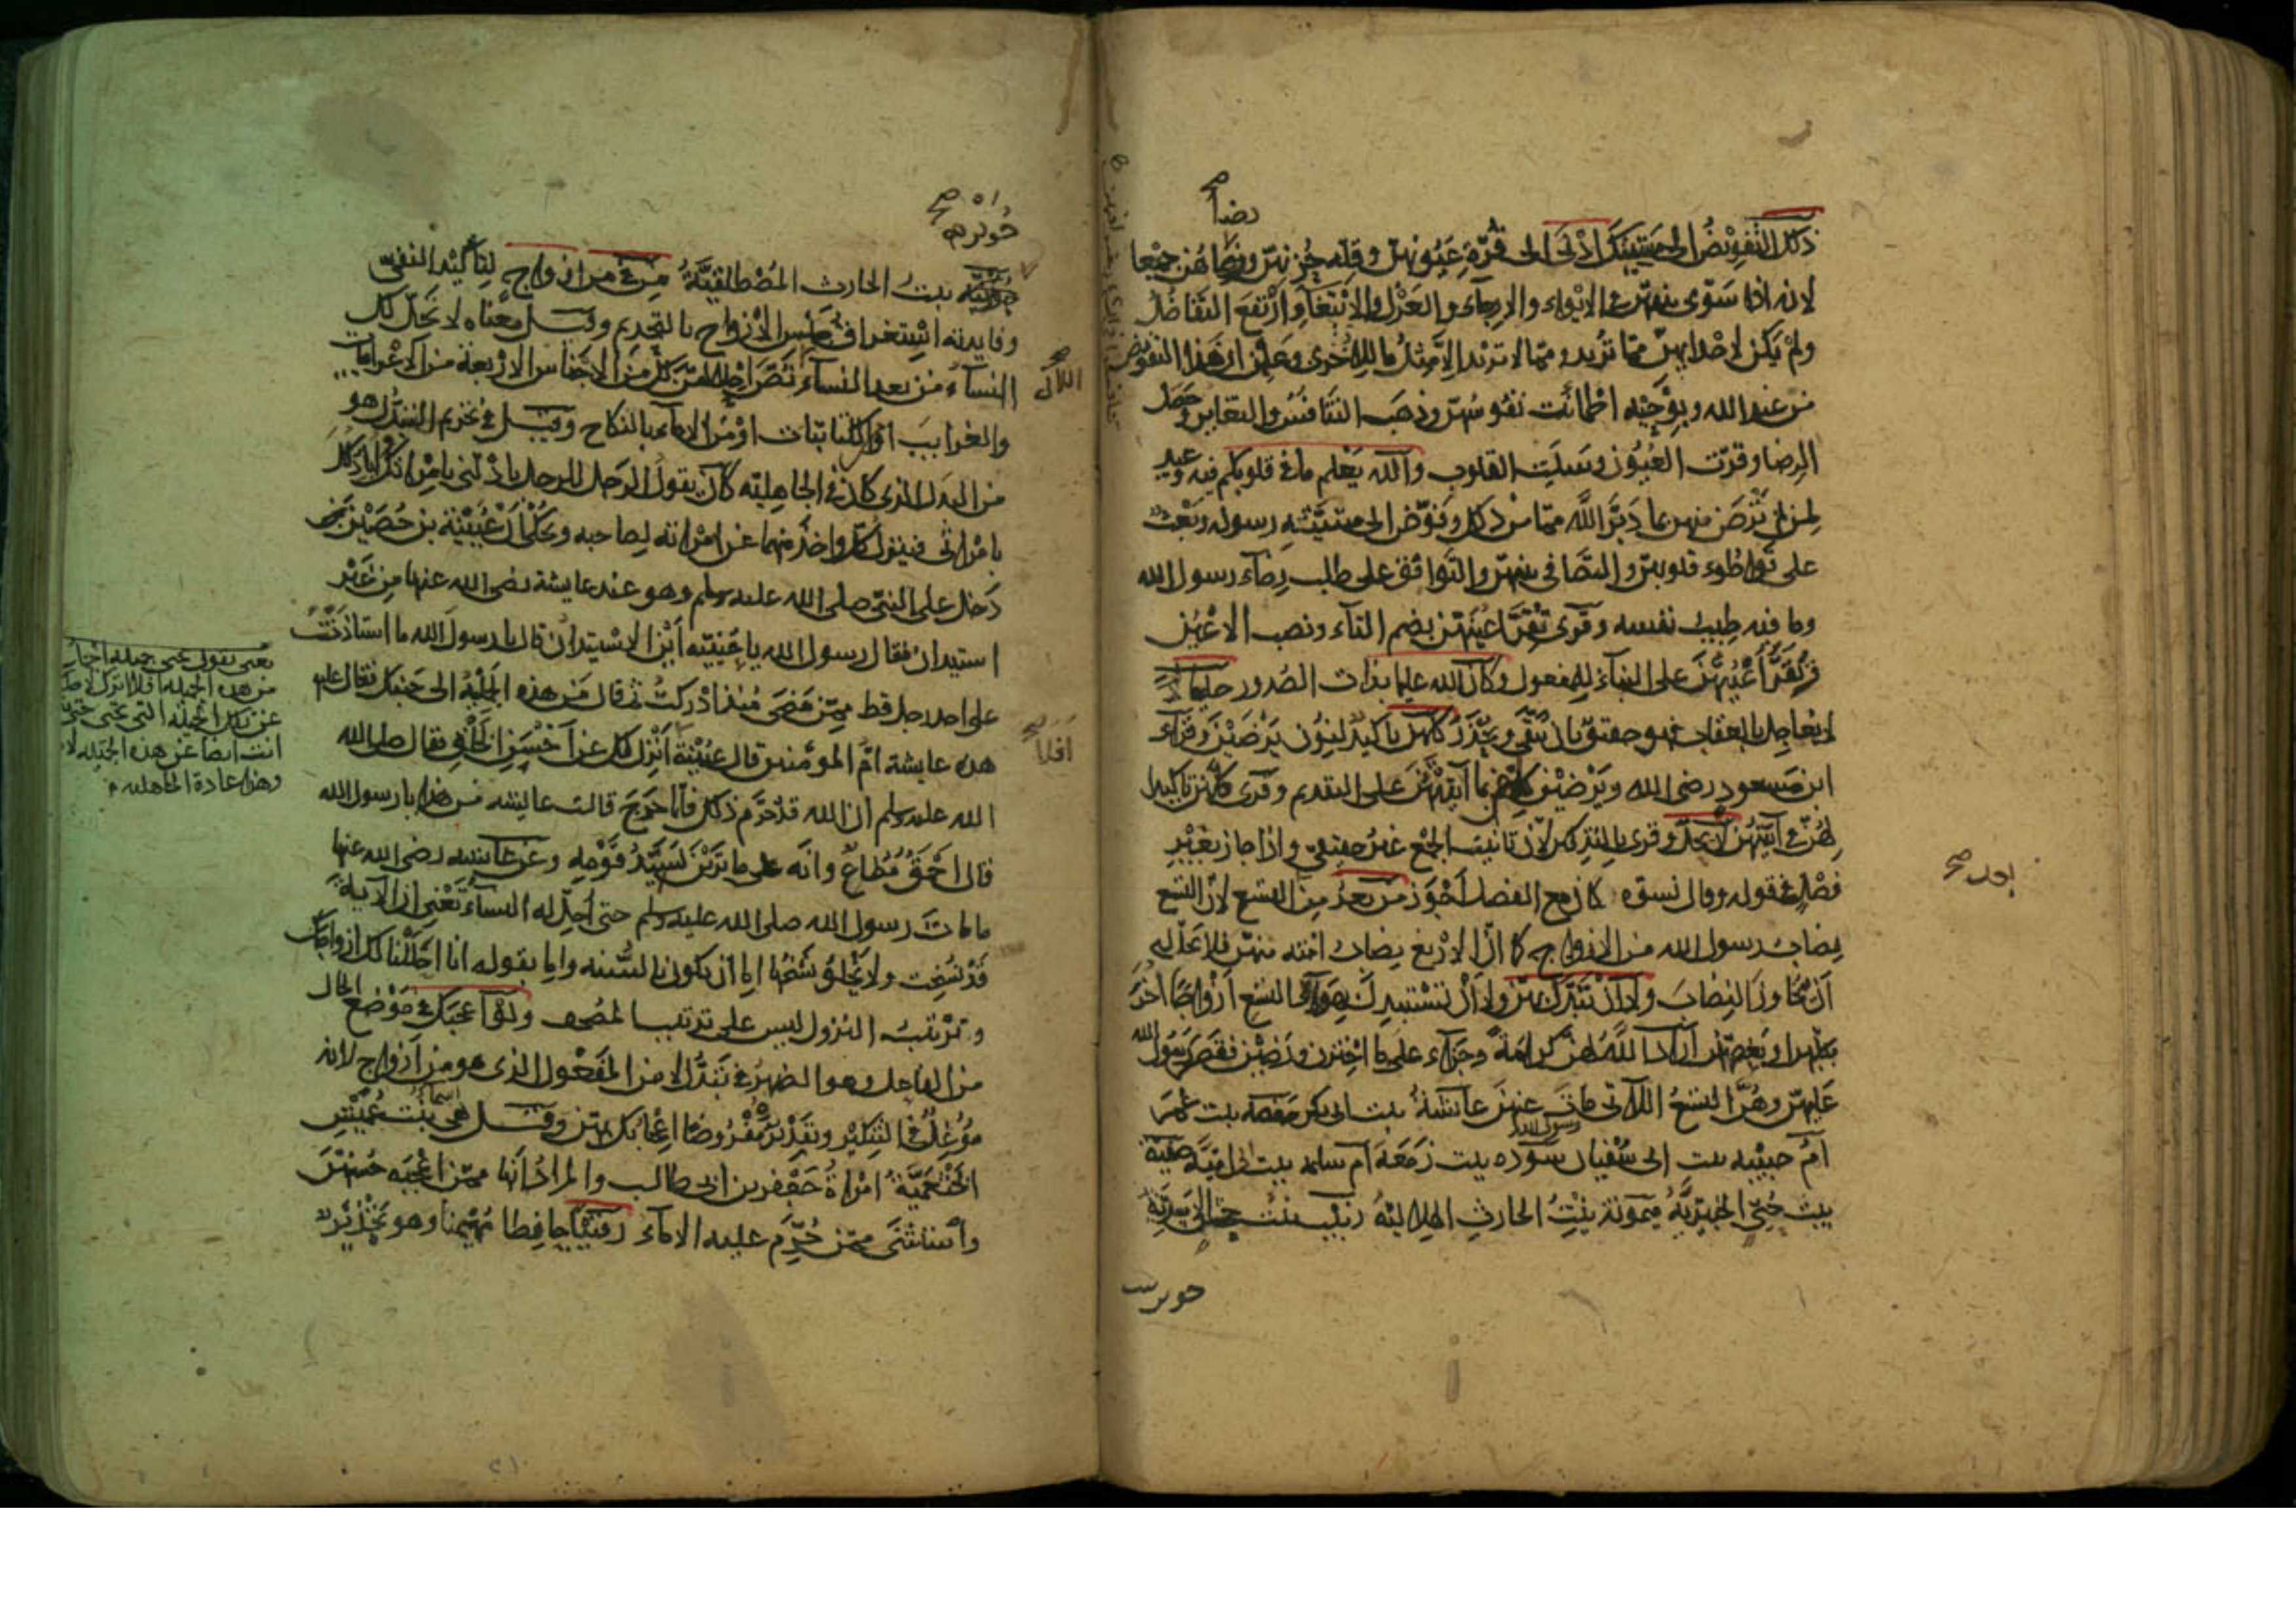 رضا صح
ذلك التفويض الى مشيتك ادنى الى قرة عيونهن وقلة حزنهن ورضاهن جميعا
لانه اذا سوّى بينهن في الايواء والارجاء والعزل والابتغاء وارتفع التفاضل
ولم يكن لاحداهن مما تريد ومما لا تريد الا مثل ما للاخرى وعلمن ان هذا التفويض
من عند الله وبوحيه اطمأنت نفوسهن وذهب التنافس والتغاير وحصل
الرضا وقرّت العيون وسلت القلوب والله يعلم ما في قلوبكم فيه وعيد
لمن لم ترض منهن بما دبّر الله مما من ذلك وفوّض الى مشيّته رسوله وبعث
على تواطوء قلوبهن والتصافي بينهن والتوافق على طلب رضاء رسول الله
وما فيه طيب نفسه وقرى تقر اعينهن بضم التاء ونصب الاعين
وتقرّ اعينهن على البناء للمفعول وكان الله عليما بذات الصدور حليما لا
يعاجل بالعقاب فهو حقيق بان يتقى ويحذر كلهن تاكيد لنون يرضين وقرأ
ابن مسعود رضي الله ويرضين كلهن بما آتيتهن على التقديم وقرى كلهن تاكيدا
لهن في آتيتهن لا يحل وقرى بالتذكير لان تانيث الجمع غير حقيقي واذا جاز بغير
فصل في قوله وقال نسوة كان مع الفصل اجوز من بعد من التسع لان التسع
بعد صح
نصاب رسول الله من الازواج كما ان الاربع نصاب امته منهن فلا يحل له
ان يتجاوز النصاب ولا ان تبدل بهن ولا ان تستبدل بهؤلاء التسع ازواجا اخر
بكلهن او بعضهن اراد الله لهن كرامة وجزاء على ما اخترن ورضين فقصر رسول الله
عليهن وهن التسع اللاتي مات عنهن عائشة بنت ابي بكر حفصة بنت عمر
رسول الله
ام حبيبه بنت ابي سفيان سوده بنت زمعة ام سلمه بنت ابي امية صفية
بنت حيي الخيبرية ميمونة بنت الحارث الهلالية زينب بنت جحش الاسدية
جويريت
جويرية صح
جويرية بنت الحارث المصطلقية من في من ازواج لتاكيد النفي
وفايدته استغراق جنس الازواج بالتحريم وقيل معناه لا تحل لك
النساء من بعد النساء نص احلالهن لك من الاجناس الاربعة من الاعرابيات
اللاتي صح
والغرايب او الكتابيات او من الاماء بالنكاح وقيل في تحريم التبدل هو
من البدل الذي كان في الجاهلية كان يقول الرجل للرجل بادلني بامراتك وابادلك
بامراتي فينزل كل واحد منهما عن امراته لصاحبه وحكي ان عيينة بن حصين
دخل على النبي صلى الله عليه وسلم وهو عند عايشة رضي الله عنها من غير
استيذان فقال رسول الله يا عيينه اين الاستيذان قال يا رسول الله ما استاذنت
على احد رجل قط ممن مضى منذ ادركت ثم قال من هذه الجميلة الى جنبك فقال عليه
هذه عايشة ام المومنين قال عيينة انزل لك عن احسن الخلق فقال صلى الله
افلا صح
الله عليه وسلم ان الله قد حرم ذلك فلما خرج قالت عايشه من هذا يا رسول الله
قال احمق مطاع وانه على ما ترين لسيّد قومه وعن عايشه رضي الله عنها
ما مات رسول الله صلى الله عليه وسلم حتى احل له النساء تعني ان الآية
قد نسخت ولا يخلو نسخها اما ان يكون بالسنه واما بقوله انا احللنا لك ازواجك
و ترتيب النزول ليس على ترتيب المصحف ولو اعجبك في موضع الحال
من الفاعل وهو الضمير في تبدل لا من المفعول الذي هو من ازواج لانه
موغل في التنكير وتقديره مفروضا اعجابك بهن وقيل هي اسماء بنت عميس
الخثعمية امراة جعفر بن ابي طالب والمراد انها ممن اعجبه حسنهن
واستثنى ممن حرّم عليه الاماء رقيبا حافظا مهيمنا وهو تحذير
يعني نقول عني جميله
من هذه الجميله افلا انزل لك
عن تلك الجميله التي تحتي حتى
انت ايضا عن هذه الجميله
وهذا عادة الجاهليه